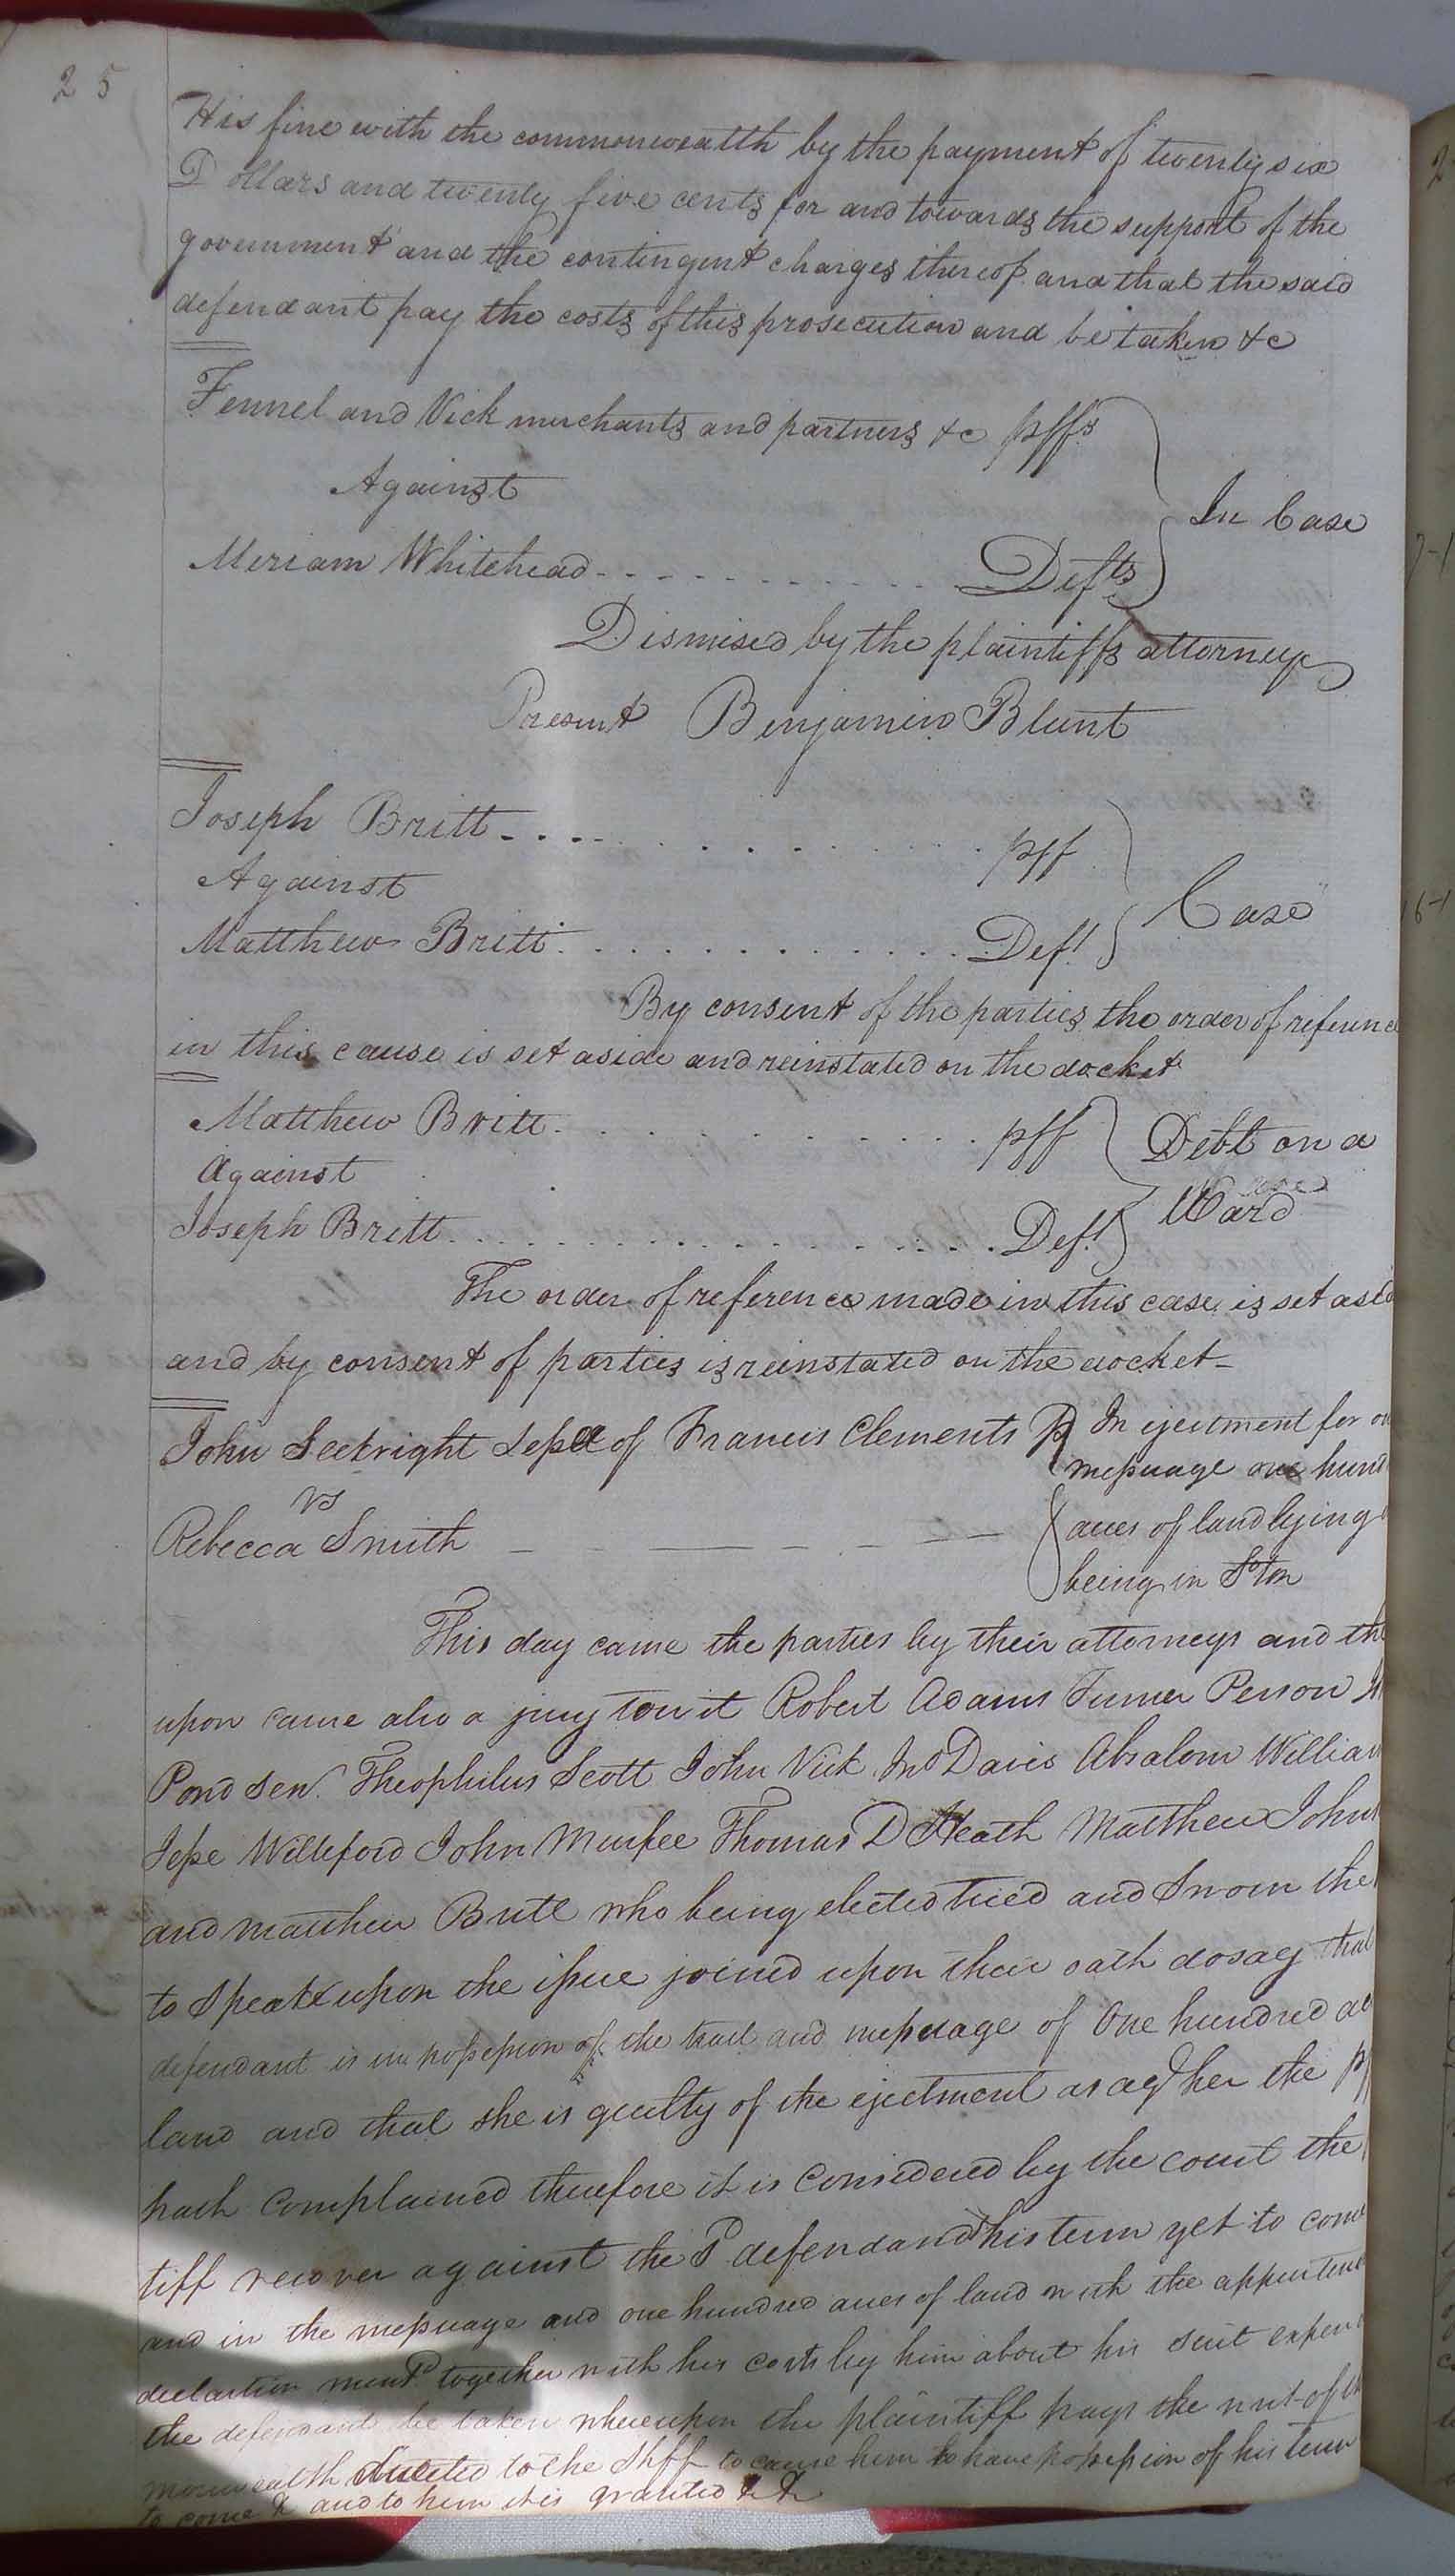 25
His fine with the commonwealth by the payment of twenty six
Dollars and twenty five cents for and towards the support of the
government and the contingent charges thereof and that the said
defendant pay the costs of this prosecution and be taken &c
Fennel and Vick merchants and partners &c pffs
Against
In Case
Meriam Whitehead Defts
Dismised by the plaintiffs attorney
Present Benjamin Blunt
Joseph Britt pff
Against
Case
Matthew Britt Deft
By consent of the parties the order of referenc
in this cause is set aside and reinstated on the docket
Matthew Britt pff Debt on a
Against
Ward
Joseph Britt Deft
The order of reference made in this case is set asid
and by consent of parties is reinstated on the docket
John Seekright Lessee of Francis Clements P In ejectment for
messuage one hund
vs
Rebecca Smith acres of land lying
being in Soton
This day came the parties by their attorneys and the
upon came also a jury towit Robert Adams Turner Person
Pond Senr Theophilus Scott John Vick Jno Davis Absalom William
Jesse Williford John Murfee Thomas D Heath Matthew Johns
and Matthew Britt who being elected tried and Sworn the
to Speak upon the issue joined upon their oath do say that
defendant is in possession of the tract and messuage of One hundred ac
land and that she is guilty of the ejectment as agt her the
hath Complained therefore it is Considered by the court the
tiff recover against the sd defendant his term yet to come
and in the messuage and one hundred acres of land with the appurtene
declartion mentd together with his costs by him about his suit expen
the defendant be taken whereupon the plaintiff prays the writ of
monwealth directed to the Shff to cause him to have possession of his term
to come & and to him it is granted &c